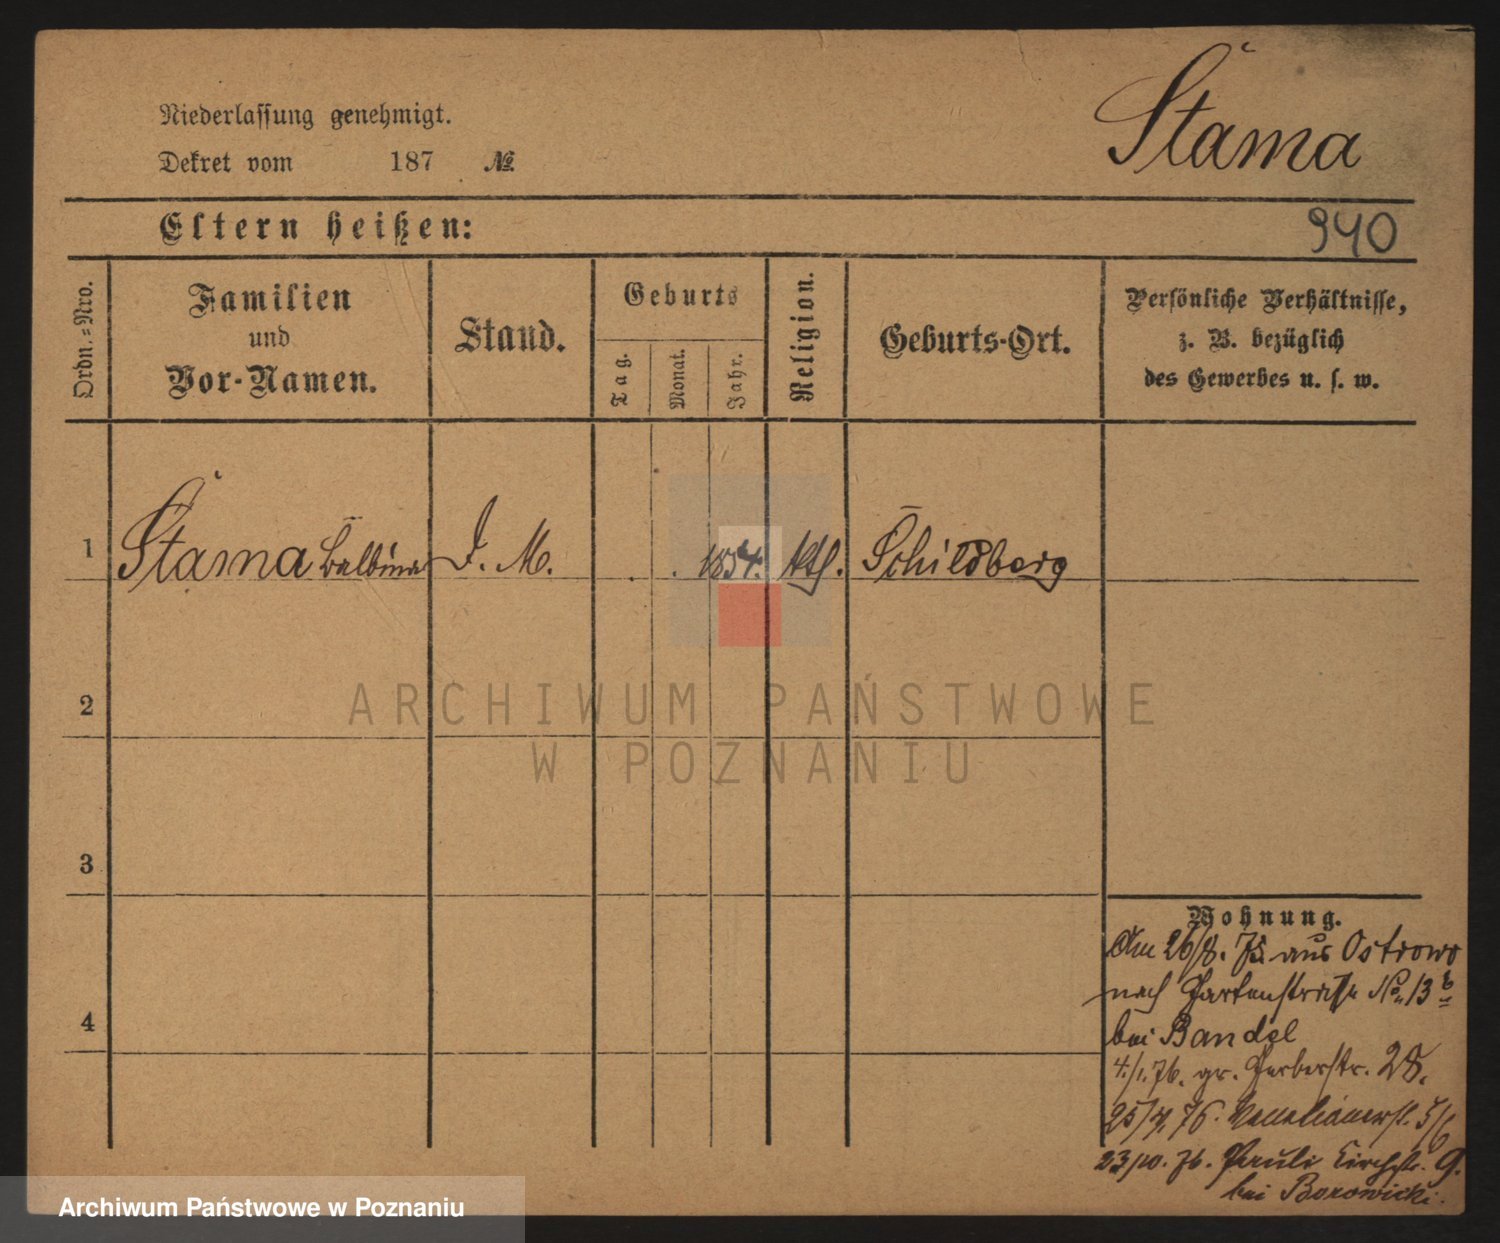 Stama
Niederlassung genehmigt.
Dekret vom 187 №
Eltern heißen:
940
Ordn.-Nro.
Familien
und
Vor-Namen.
Stand.
Geburts
Tag.
Monat.
Jahr.
Religion.
Geburts-Ort.
Persönliche Verhältnisse,
z. B. bezüglich
des Gewerbes u. s. w.
1 Stama Balbina D. M. 1854. kth. Schildberg
2
3
4
Wohnung.
Am 26/8. 75 aus Ostrowo
nach Gartenstraße No 13 b
bei Bandel
4./1. 76. gr. Gerberstr. 28.
25/4. 76. Venetianerst. 5/6
23/10. 76. Pauli Kirchstr. 9.
bei Borowicki.
ARCHIWUM PAŃSTWOWE
W POZNANIU
Archiwum Państwowe w Poznaniu